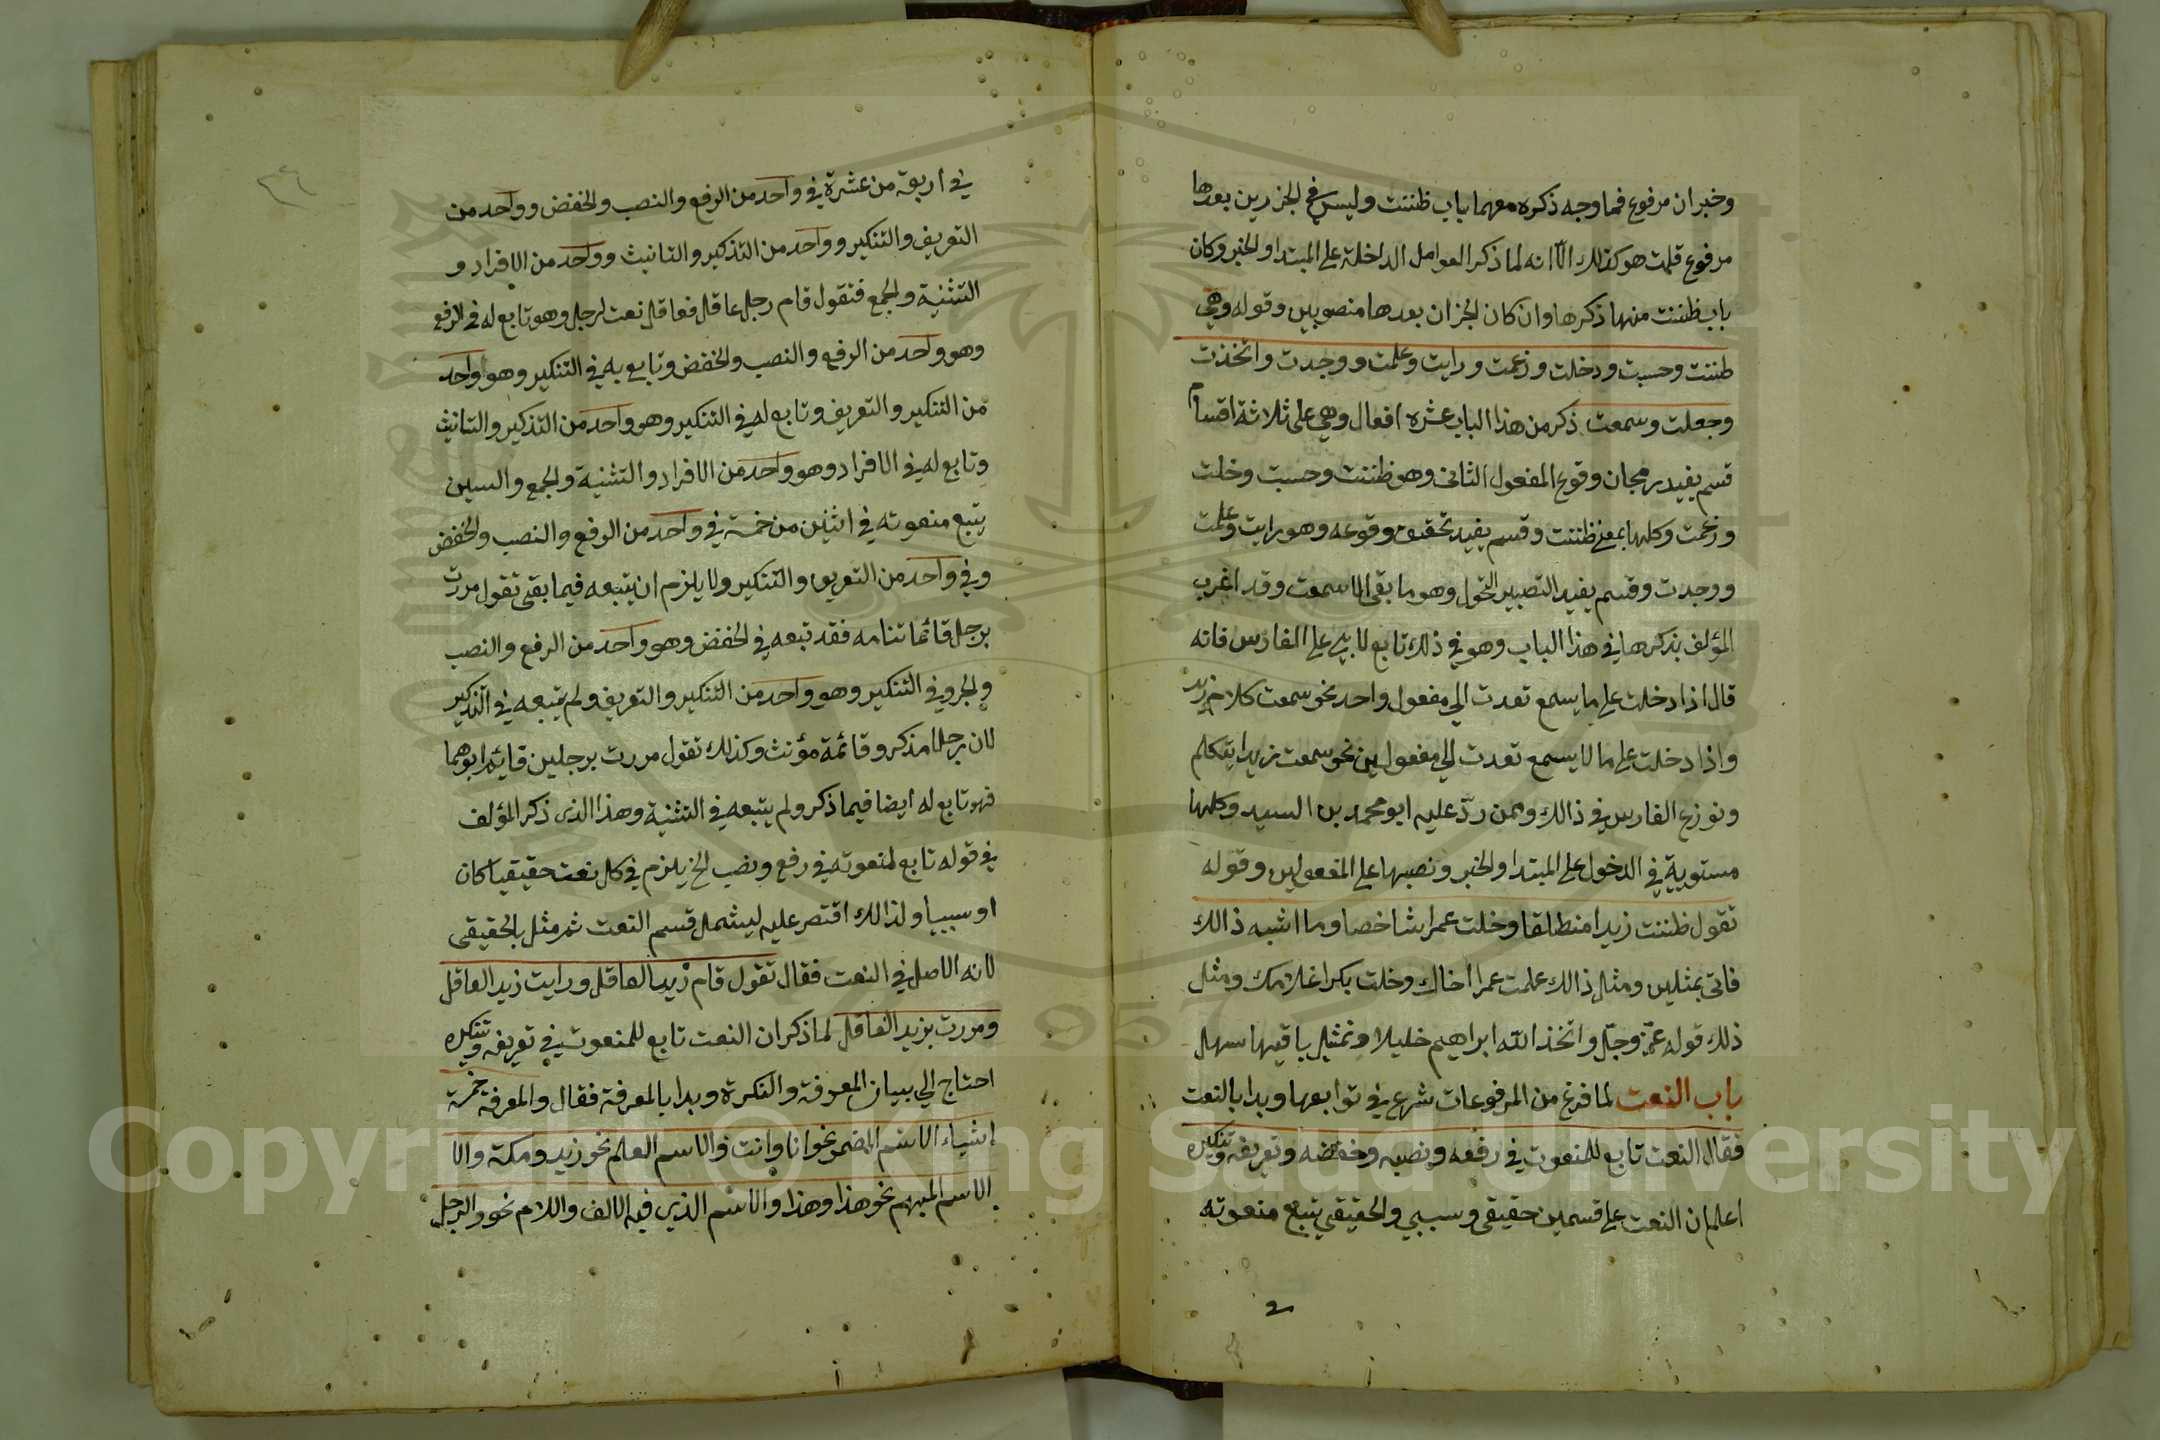 وخبران مرفوع فما وجه ذكره معهما باب ظننت وليس في الجزءين بعدها
مرفوع قلت هو كذلك الا انه لما ذكر العوامل الداخلة على المبتدا والخبر وكان
باب ظننت منها ذكرها وان كان الجزان بعدها منصوبين وقوله وهي
ظننت وحسبت ودخلت وزعمت ورايت وعلمت ووجدت واتخذت
وجعلت وسمعت ذكر من هذا الباب عشرة افعال وهي على ثلاثة اقسام
قسم يفيد رجحان وقوع المفعول الثاني وهو ظننت وحسبت وخلت
وزعمت وكلها بمعنى ظننت وقسم يفيد تحقيق وقوعه وهو رايت وعلمت
ووجدت وقسم يفيد التصيير التحول وهو ما بقي الا سمعت وقد اغرب
المؤلف بذكرها في هذا الباب وهو في ذلك تابع لابي علي الفارس فانه
قال اذا دخلت على ما يسمع تعدت الى مفعول واحد نحو سمعت كلام زيد
واذا دخلت على ما لا يسمع تعدت الى مفعولين نحو سمعت زيدا يتكلم
ونوزع الفارس في ذالك وممن ردّ عليه ابو محمد بن السيد وكلها
مستوية في الدخول على المبتدا والخبر ونصبها على المفعولين وقوله
تقول ظننت زيدا منطلقا وخلت عمرا شاخصا وما اشبه ذالك
فاتى بمثلين ومثل ذالك علمت عمرا اخاك وخلت بكرا غلامك ومثل
ذلك قوله عزّ وجلّ واتخذ الله ابراهيم خليلا وتمثيل باقيها سهل
باب النعت لما فرغ من المرفوعات شرع في توابعها وبدا بالنعت
فقال النعت تابع للمنعوت في رفعه ونصبه وخفضه وتعريفه وتنكيره
اعلم ان النعت على قسمين حقيقي وسببي والحقيقي يتبع منعوته
في اربعة من عشرة في واحد من الرفع والنصب والخفض وواحد من
التعريف والتنكير وواحد من التذكير والتانيث وواحد من الافراد و
التثنية والجمع فتقول قام رجل عاقل فعاقل نعت لرجل وهو تابع له في الرفع
وهو واحد من الرفع والنصب والخفض وتابع به في التنكير وهو واحد
من التنكير والتعريف وتابع له في التنكير وهو واحد من التذكير والتانيث
وتابع له في الافراد وهو واحد من الافراد والتثنية والجمع والسببي
يتبع منعوته في اثنين من خمسة في واحد من الرفع والنصب والخفض
وفي واحد من التعريف والتنكير ولا يلزم ان يتبعه فيما بقي تقول مررت
برجل قائما تنامه فقد تبعه في الخفض وهو واحد من الرفع والنصب
والجر وفي التنكير وهو واحد من التنكير والتعريف ولم يتبعه في التذكير
لان رجلا مذكر وقائمة مؤنث وكذلك تقول مررت برجلين قائم ابوهما
فهو تابع له ايضا فيما ذكر ولم يتبعه في التثنية وهذا الذى ذكر المؤلف
في قوله تابع لمنعوته في رفع ونصب الخ يلزم في كل نعت حقيقيا كان
او سببيا ولذالك اقتصر عليه ليشمل قسم النعت ثم مثل بالحقيقي
لانه الاصل في النعت فقال تقول قام زيد العاقل ورايت زيد العاقل
ومررت بزيد العاقل لما ذكر ان النعت تابع للمنعوت في تعريفه وتنكيره
احتاج الى بيان المعرفة والنكرة وبدا بالمعرفة فقال والمعرفة خمسة
اشياء الاسم المضمر نحو انا وانت والاسم العلم نحو زيد ومكة والا
الاسم المبهم نحو هذا وهذا والاسم الذي فيه الالف واللام نحو الرجل
Copyright © King Saud University